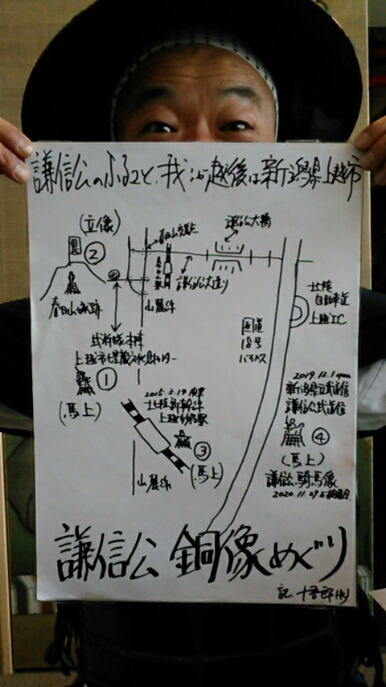 謙信公のふるさと、我が越後は新潟県上越市
(立像)
②
春日山城跡
謙信公大橋
謙信公大通り
山麓線
上越市埋蔵文化財センター
①
(馬上)
国道
18号
バイパス
北陸
自動車道
上越IC
2015.3.14 開業
北陸新幹線
上越妙高駅
③
(馬上)
山麓線
2019.12.1 open
新潟県立武道館
謙信公武道館
④
(馬上)
謙信公騎馬像
謙信公 銅像めぐり